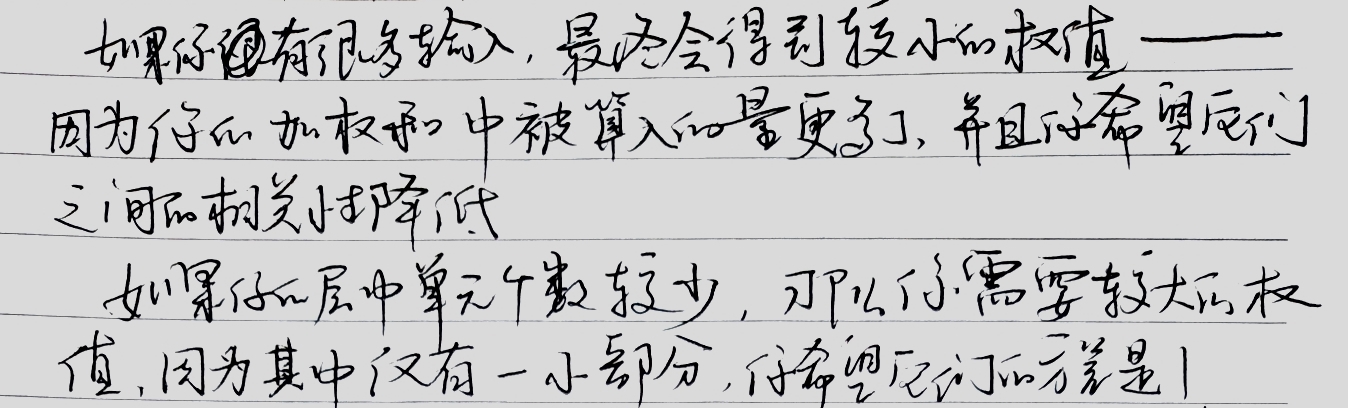 如果你有很多输入,最终会得到较小的权值——
因为你的加权和中被算入的量更多了,并且你希望它们
之间的相关性降低
如果你的层中单元个数较少,那么你需要较大的权
值,因为其中仅有一小部分,你希望它们的方差是1